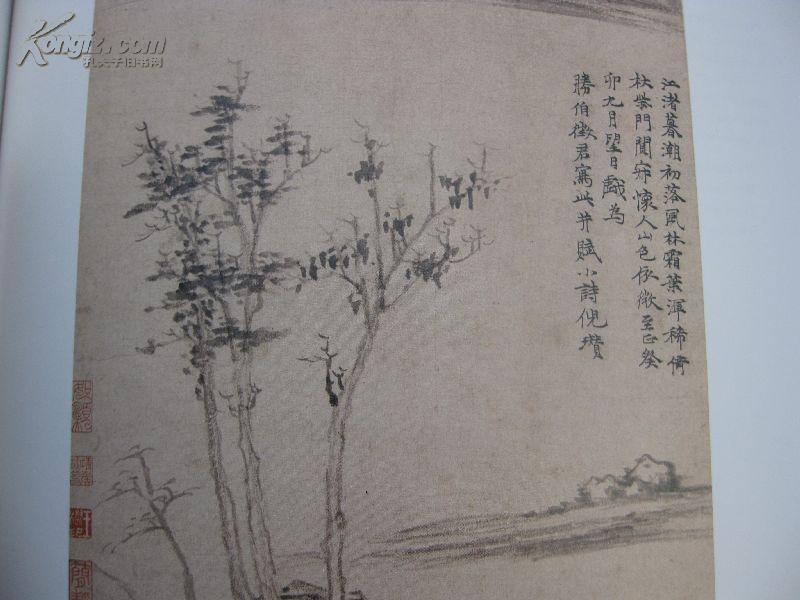 江渚暮潮初落風林霜葉渾稀倚
杖柴門闃寂懷人山色依微至正癸
卯九月望日戲為
勝伯徵君寫此并賦小詩倪瓚
Kongfz.com
孔夫子旧书网